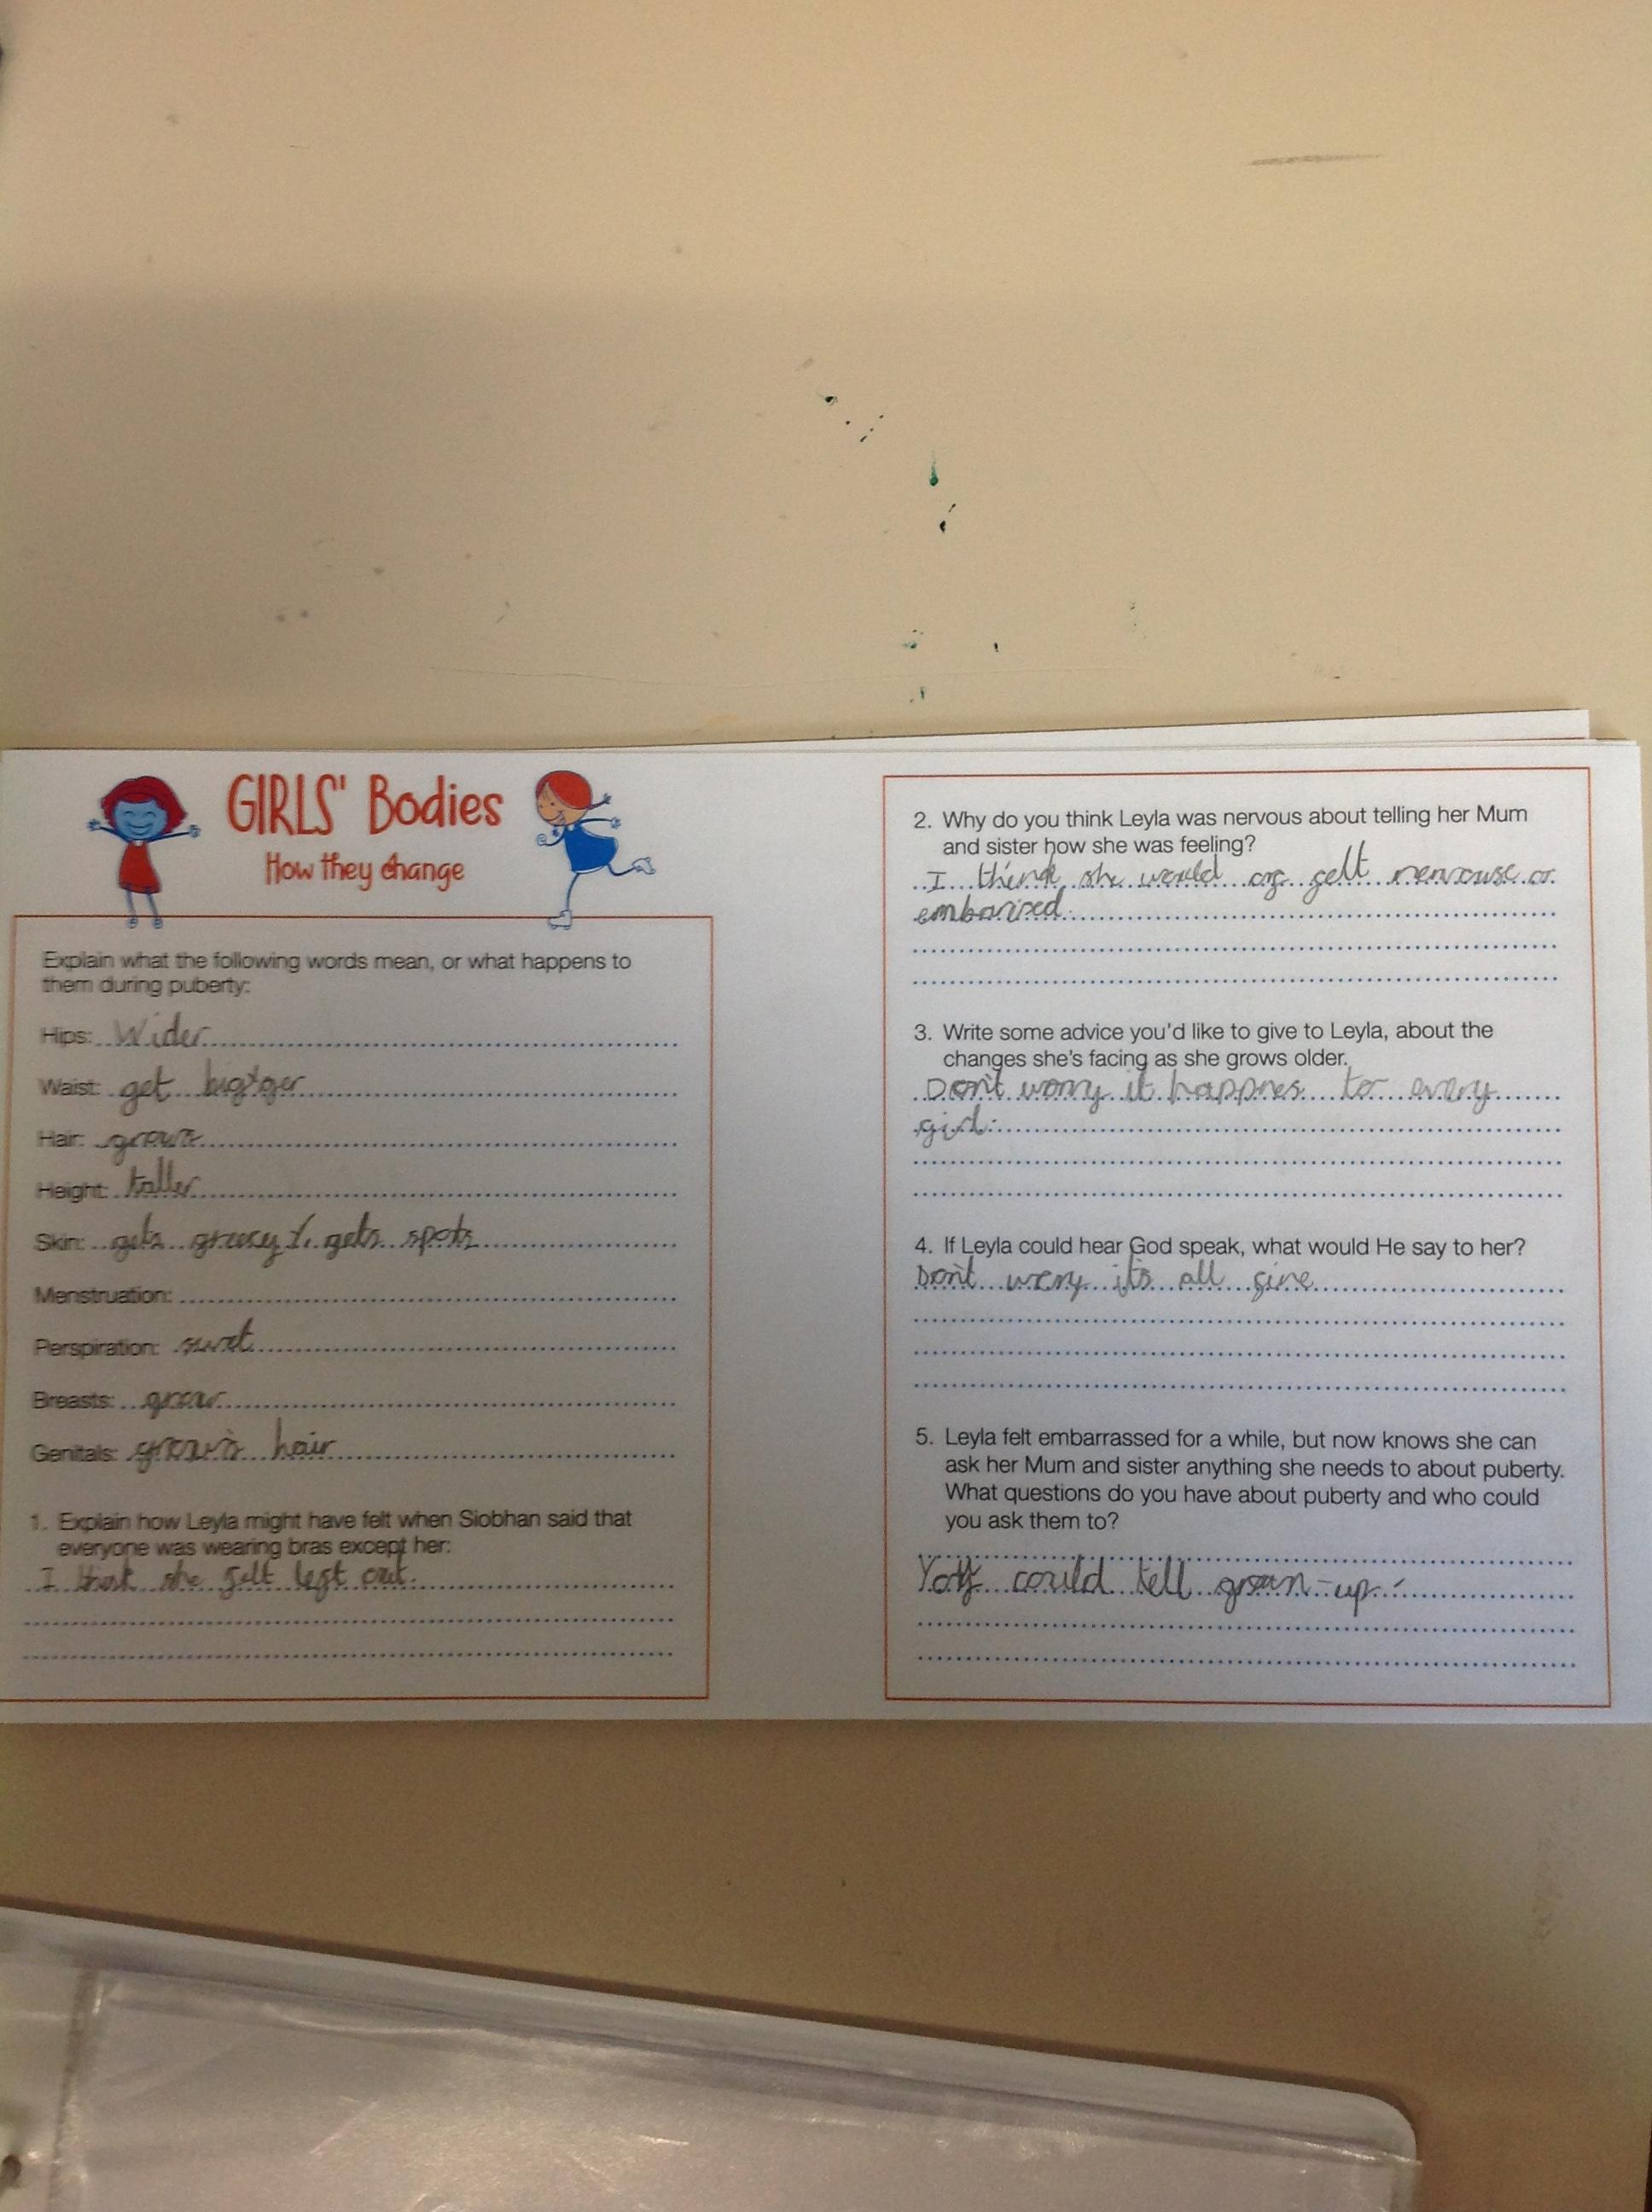 GIRLS' Bodies
How they change
Explain what the following words mean, or what happens to
them during puberty:
Hips: Wider
Waist: get bigger
Hair: grows
Height: taller
Skin: gets greesy gets spots
Menstruation:
Perspiration: swet
Breasts: grow
Genitals: grows hair
1. Explain how Leyla might have felt when Siobhan said that
everyone was wearing bras except her:
I think she felt left out.
2. Why do you think Leyla was nervous about telling her Mum
and sister how she was feeling?
I think she would of felt nervouse or
embarised.
3. Write some advice you'd like to give to Leyla, about the
changes she's facing as she grows older.
Don't worry it happnes to every
girl.
4. If Leyla could hear God speak, what would He say to her?
Don't wery it's all fine
5. Leyla felt embarrassed for a while, but now knows she can
ask her Mum and sister anything she needs to about puberty.
What questions do you have about puberty and who could
you ask them to?
could tell grown-up